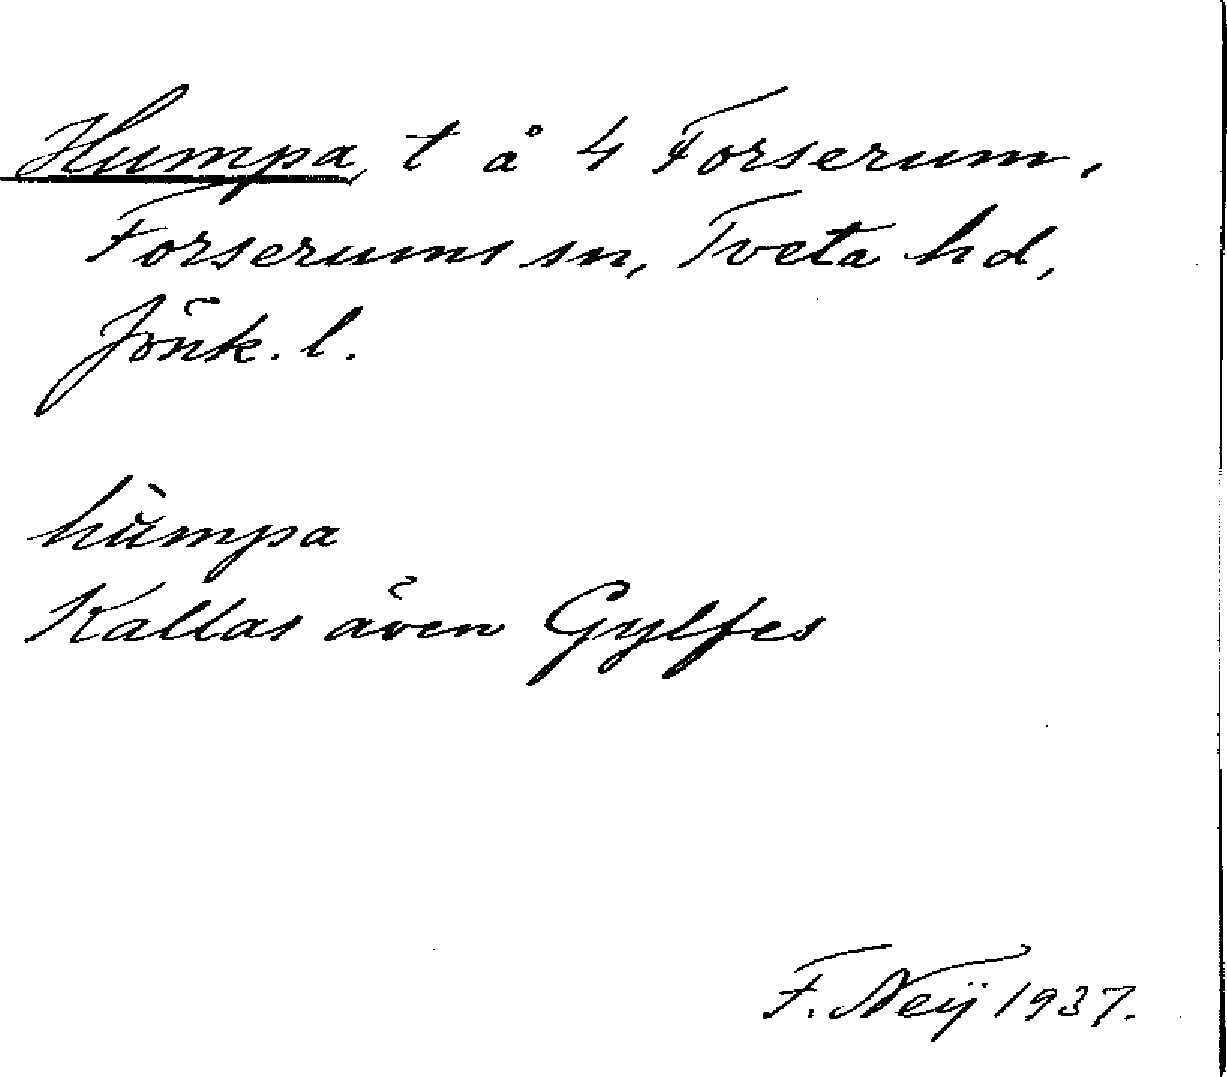 Humpa, t å 4 Forserum,
Forserums sn, Tveta hd,
Jönk. l.
hùmpa
Kallas även Gylfes
F. Neij 1937.